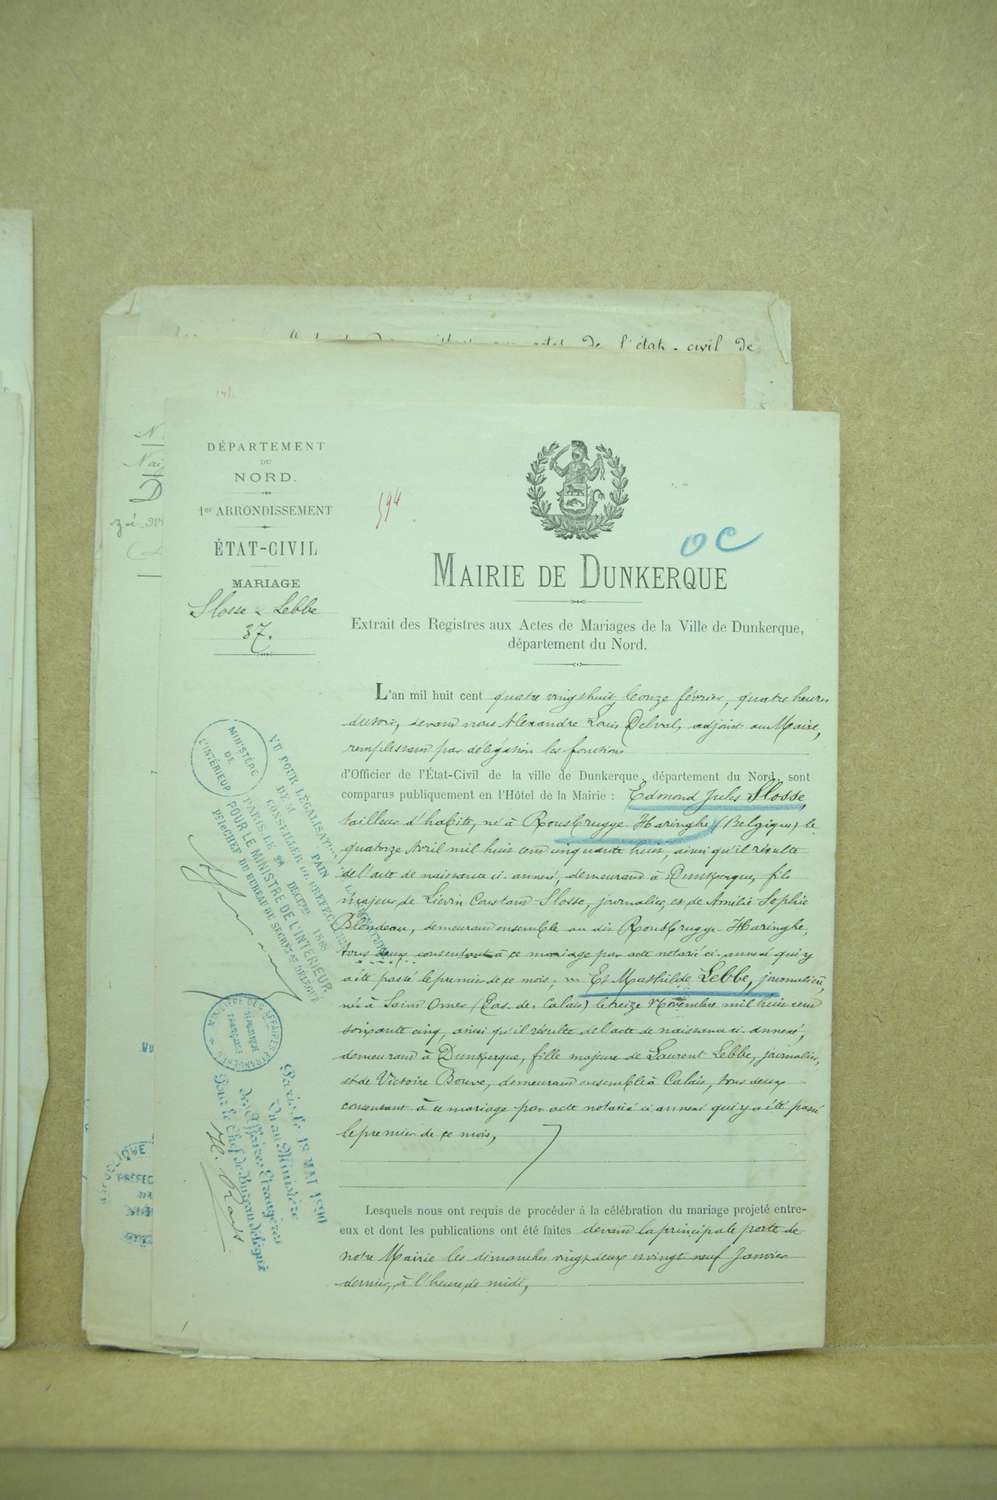 de l'état-civil de
DÉPARTEMENT
DU
NORD.
1er ARRONDISSEMENT
ÉTAT-CIVIL
MARIAGE
Slosse & Lebbe
37.
594
OC
MAIRIE DE DUNKERQUE
Extrait des Registres aux Actes de Mariages de la Ville de Dunkerque,
département du Nord.
L'an mil huit cent quatre vingt huit, le onze février, quatre heures
du soir, devant nous Alexandre Louis Delval, adjoint au Maire,
remplissant par délégation les fonctions
d'Officier de l'État-Civil de la ville de Dunkerque, département du Nord, sont
comparus publiquement en l'Hôtel de la Mairie : Edmond Jules Slosse,
tailleur d'habits, né à Rousbrugge Haringhe (Belgique) le
quatorze Avril mil huit cent cinquante huit, ainsi qu'il résulte
de l'acte de naissance ci-annexé, demeurant à Dunkerque, fils
majeur de Liévin Constant Slosse, journalier, et de Amélie Sophie
Blondeau, demeurant ensemble au dit Rousbrugge-Haringhe,
tous deux consentant à ce mariage par acte notarié ci-annexé qui y
a été passé le premier de ce mois, Et Mathilde Lebbe, journalière,
née à Saint Omer (Pas-de-Calais) le treize Novembre mil huit cent
soixante cinq, ainsi qu'il résulte de l'acte de naissance ci-annexé,
demeurant à Dunkerque, fille majeure de Laurent Lebbe, journalier,
et de Victoire Bouve, demeurant ensemble à Calais, tous deux
consentant à ce mariage par acte notarié ci annexé qui y a été passé
le premier de ce mois,
Lesquels nous ont requis de procéder à la célébration du mariage projeté entre-
eux et dont les publications ont été faites devant la principale porte de
notre Mairie les dimanches vingt deux et vingt neuf Janvier
dernier, à l'heure de midi,
MINISTÈRE
DE
L'INTÉRIEUR
VU POUR LÉGALISATION
PARIS, LE
POUR LE MINISTRE DE L'INTÉRIEUR
MINISTÈRE DES AFFAIRES ÉTRANGÈRES
Paris, le 12 MAI 1890
Vu au Ministère
des Affaires Étrangères
Pour le Chef de Bureau délégué